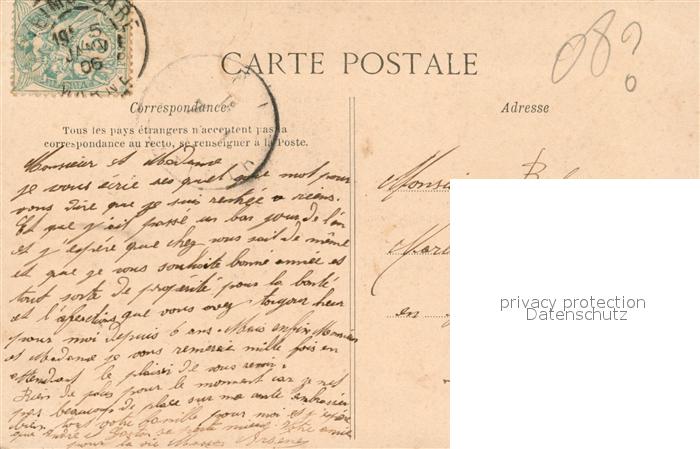 CARTE POSTALE
08?
Correspondance
Adresse
Tous les pays étrangers n'acceptent pas la
correspondance au recto, se renseigner à la Poste.
Monsieur et Madame
je vous écrie ses quel que mot pour
vous dire que je suis rentré a
Et que j'ait passé un bas jour de l'an
et j'espéré que chez vous sait de même
et que je vous souhaite bonne année et
tout sorte de propérité pour la bonté
et l'afection que vous avez toujour heu
pour moi depuis 6 ans. Mais enfin Monsieur
et Madame je vous remerci mille fois en
attendant le plaisir de vous revoir.
Rien de plus pour le moment car je n'est
pas beaucoup de place sur ma carte
bien tout votre famille pour moi et j'espére
que André et Gaston se porte mieux. Votre amie
pour la vie
Monsi
en
privacy protection
Datenschutz